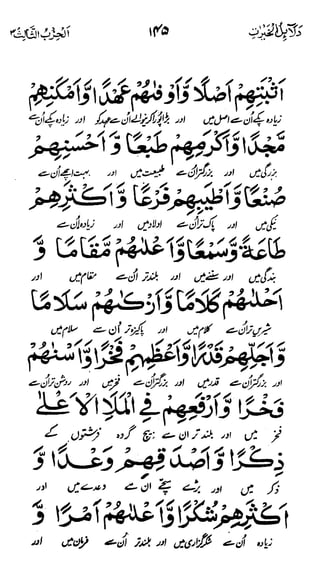 دلائل الخیرات ۱۴۵ الحزب الثالث ۳
اَثْبَتِهِمْ اَصْلًا وَّاَوْفٰىهُمْ عَهْدًا وَّاَمْكَنِهِمْ
زیادہ پکے اُن سے اصل میں اور بڑا پورا کرنیوالے اُن سے عہد کو اور زیادہ پکے اُن سے
مَّجْدًا وَّاَكْرَمِهِمْ طَبْعًا وَّ اَحْسَنِهِمْ
بزرگی میں اور بزرگتر اُن سے طبیعت میں اور بہت اچھے اُن سے
صُنْعًا وَّاَطْيَبِهِمْ فَرْعًا وَّ اَكْثَرِهِمْ
نیکی میں اور پاک تر اُن سے اولاد میں اور زیادہ اُن سے
طَاعَةً وَّسَمْعًا وَّاَعْلٰىهُمْ مَّقَامًا وَّ
بندگی میں اور سننے میں اور بلند تر اُن سے مقام میں اور
اَحْلٰىهُمْ كَلَامًا وَّاَزْكٰىهُمْ سَلَامًا
شیریں تر اُن سے کلام میں اور پاکیزہ تر اُن سے سلام میں
وَّاَجَلِّهِمْ قَدْرًا وَّاَعْظَمِهِمْ فَخْرًا وَّاَسْنٰىهُمْ
اور بزرگتر اُن سے قدر میں اور بزرگتر اُن سے فخر میں اور روشن تر اُن سے
فَخْرًا وَّاَرْفَعِهِمْ فِي الْمَلَاِ الْاَعْلٰى
فخر میں اور بلند تر ان سے بیچ گروہ فرشتوں کے
ذِكْرًا وَّاَصْدَقِهِمْ وَعْدًا وَّ
ذکر میں اور بڑے سچے اُن سے وعدے میں اور
اَكْثَرِهِمْ شُكْرًا وَّاَعْلٰىهُمْ اَمْرًا وَّ
زیادہ اُن سے شکر گزاری میں اور بلند تر اُن سے فرمان میں اور